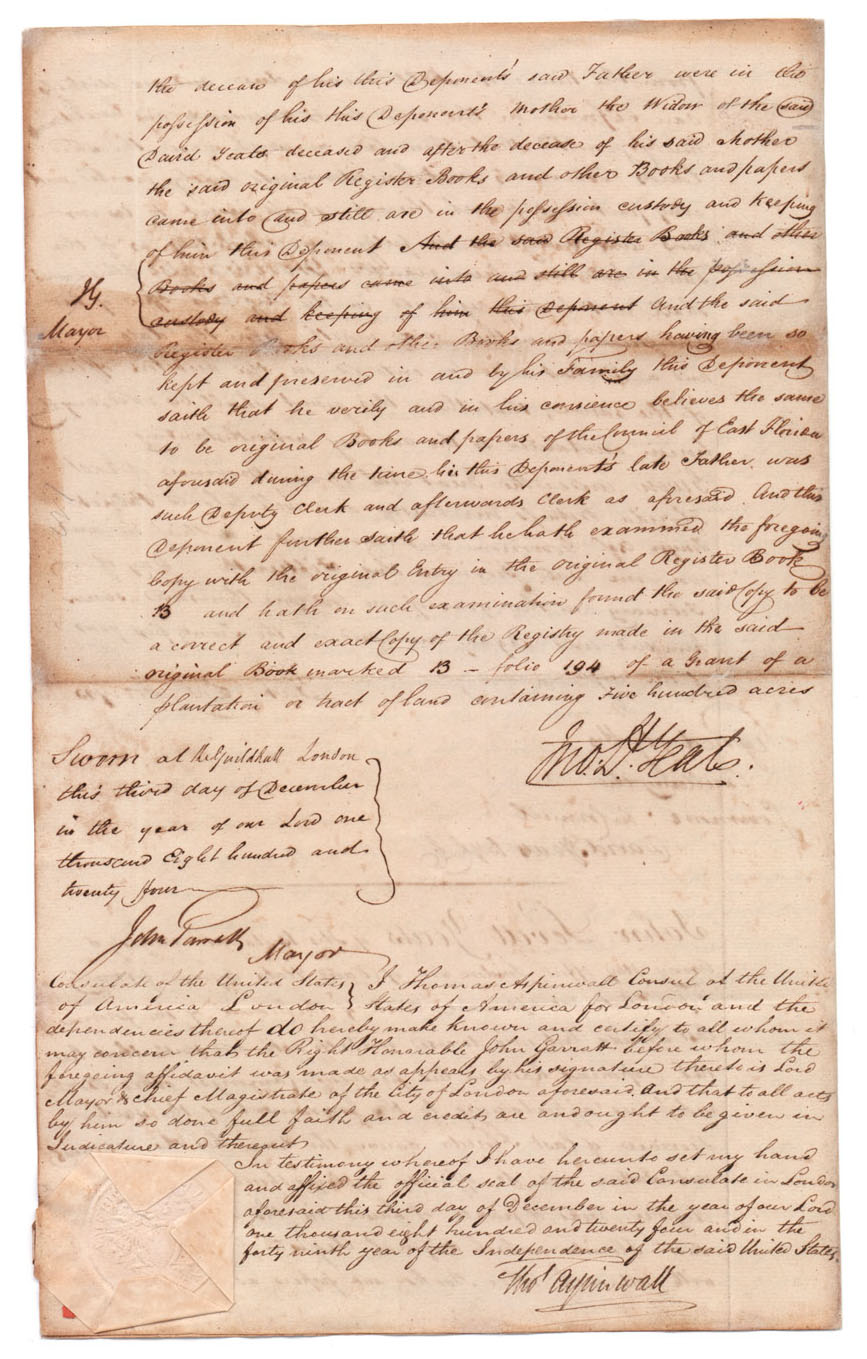 the decease of his this Deponents' said Father were in the
possession of his this Deponents Mother the Widow of the said
David Yeats deceased and after the decease of his said Mother
the said original Register Books and other Books and papers
came into and still are in the possession custody and keeping
of him this Deponent And the said Register Books and other
Books and papers came into and still are in the possession
custody and keeping of him this Deponent And the said
Mayor
Register Books and other Books and papers having been so
kept and preserved in and by his Family this Deponent
saith that he verily and in his consience believes the same
to be original Books and papers of the Council of East Florida
aforesaid during the time his this Deponent's late Father was
such Deputy Clerk and afterwards Clerk as aforesaid And this
Deponent further saith that he hath examined the foregoing
Copy with the original Entry in the original Register Book
13 and hath on such examination found the said Copy to be
a correct and exact Copy of the Registry made in the said
original Book marked 13 - folio 194 of a Grant of a
plantation or tract of land containing Five hundred acres
Jno. D. Yeats.
Sworn at the Guildhall London
this third day of December
in the year of our Lord one
thousand Eight hundred and
twenty four
John Garratt
Mayor
Consulate of the United States } I Thomas Aspinwall Consul of the United
of America London } States of America for London and the
dependencies thereof do hereby make known and certify to all whom it
may concern that the Right Honorable John Garratt before whom the
foregoing affidavit was made as appears by his signature thereto is Lord
Mayor & chief Magistrate of the City of London aforesaid and that to all acts
by him so done full faith and credit are and ought to be given in
Judicature and thereout
In testimony whereof I have hereunto set my hand
and affixed the official seal of the said Consulate in London
aforesaid this third day of December in the year of our Lord
one thousand eight hundred and twenty four and in the
forty ninth year of the Independence of the said United States.
Thos Aspinwall